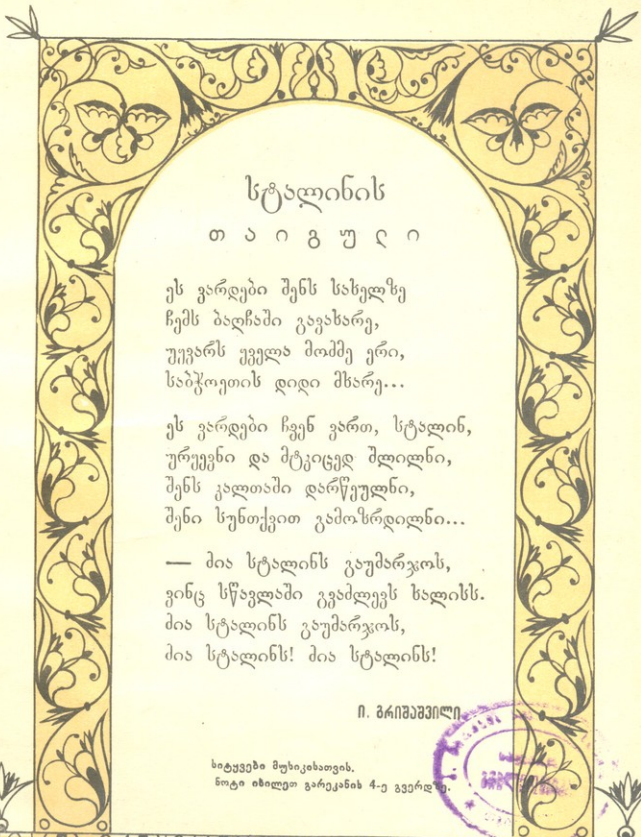 სტალინის
თაიგული
ეს ვარდები შენს სახელზე
ჩემს ბაღჩაში გავახარე,
უყვარს ყველა მოძმე ერი,
საბჭოეთის დიდი მხარე...
ეს ვარდები ჩვენ ვართ, სტალინ,
ურყევნი და მტკიცედ შლილნი,
შენს კალთაში დარწეულნი,
შენი სუნთქვით გამოზრდილნი...
— ძია სტალინს გაუმარჯოს,
ვინც სწავლაში გვაძლევს ხალისს.
ძია სტალინს გაუმარჯოს,
ძია სტალინს! ძია სტალინს!
ი. გრიშაშვილი
სიტყვები მუსიკისათვის.
ნოტი იხილეთ გარეკანის 4-ე გვერდზე.